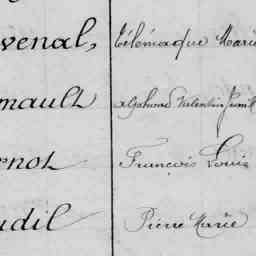 venal, Télémaque Marie
mault Alphonse Valentin
rnot François Louis
udil Pierre Marie